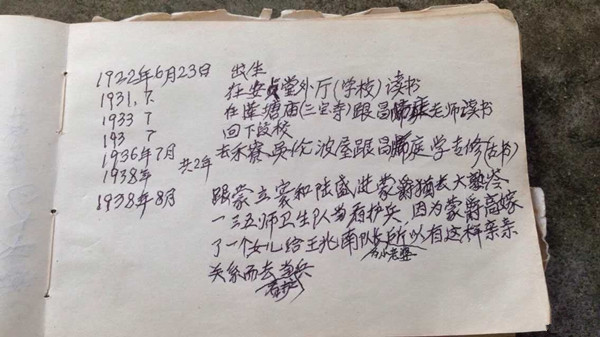 1922年6月23日 出生
1931.7. 在安贞堂外厅(学校)读书
1933 7 在莲塘庙(三宝寺)跟昌庭老师读书
193 7 回下段校
1936年7月 去禾寮 波屋跟昌庭学专修(古书)
1938年 共2年
1938年8月 跟蒙立寰和陆盛 蒙爵 去大塾
一三五师卫生队当看护兵,因为蒙爵高嫁
了一个女儿给王兆南队长 所以有这样亲亲
为小老婆
关系而去当兵
看护